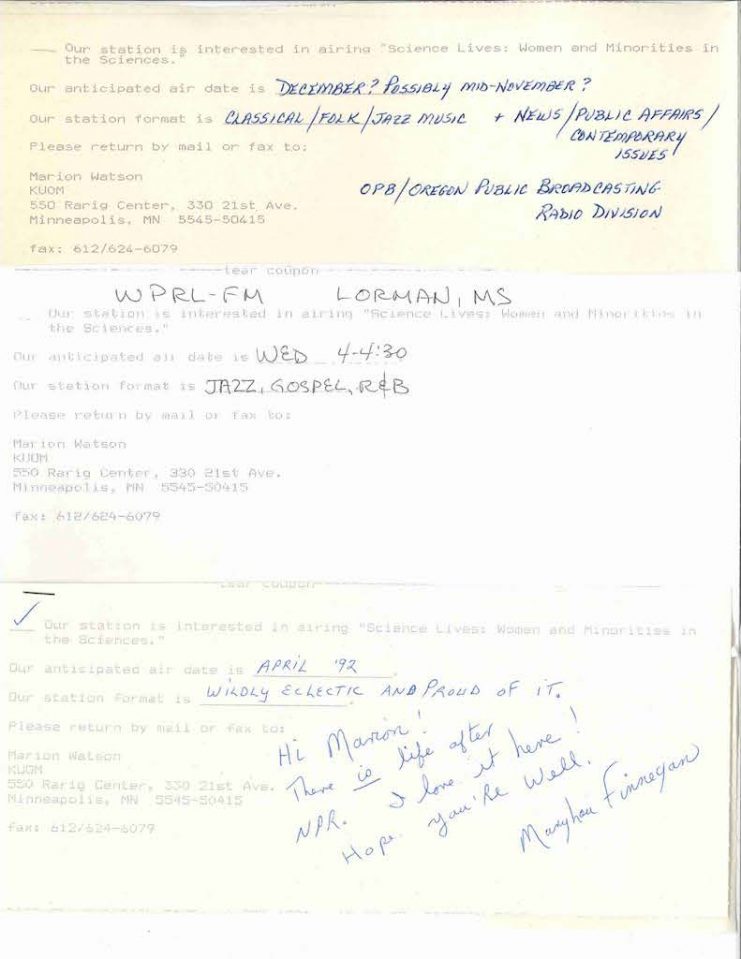 coupon
Our station is interested in airing "Science Lives: Women and Minorities in
the Sciences."
Our anticipated air date is DECEMBER? POSSIBLY MID-NOVEMBER?
Our station format is CLASSICAL/FOLK/JAZZ MUSIC + NEWS/PUBLIC AFFAIRS/
CONTEMPORARY
ISSUES
Please return by mail or fax to:
Marion Watson
KUOM
OPB/OREGON PUBLIC BROADCASTING
550 Rarig Center, 330 21st Ave.
RADIO DIVISION
Minneapolis, MN 5545-50415
fax: 612/624-6079
tear coupon
WPRL-FM LORMAN, MS
Our station is interested in airing "Science Lives: Women and Minorities in
the Sciences."
Our anticipated air date is WED 4-4:30
Our station format is JAZZ, GOSPEL, R&B
Please return by mail or fax to:
Marion Watson
KUOM
550 Rarig Center, 330 21st Ave.
Minneapolis, MN 5545-50415
fax: 612/624-6079
tear coupon
✓ Our station is interested in airing "Science Lives: Women and Minorities in
the Sciences."
Our anticipated air date is APRIL '92
Our station format is WILDLY ECLECTIC AND PROUD OF IT.
Please return by mail or fax to:
Marion Watson
KUOM
550 Rarig Center, 330 21st Ave.
Minneapolis, MN 5545-50415
fax: 612/624-6079
Hi Marion!
There is life after
NPR. I love it here!
Hope you're well.
Marylou Finnegan